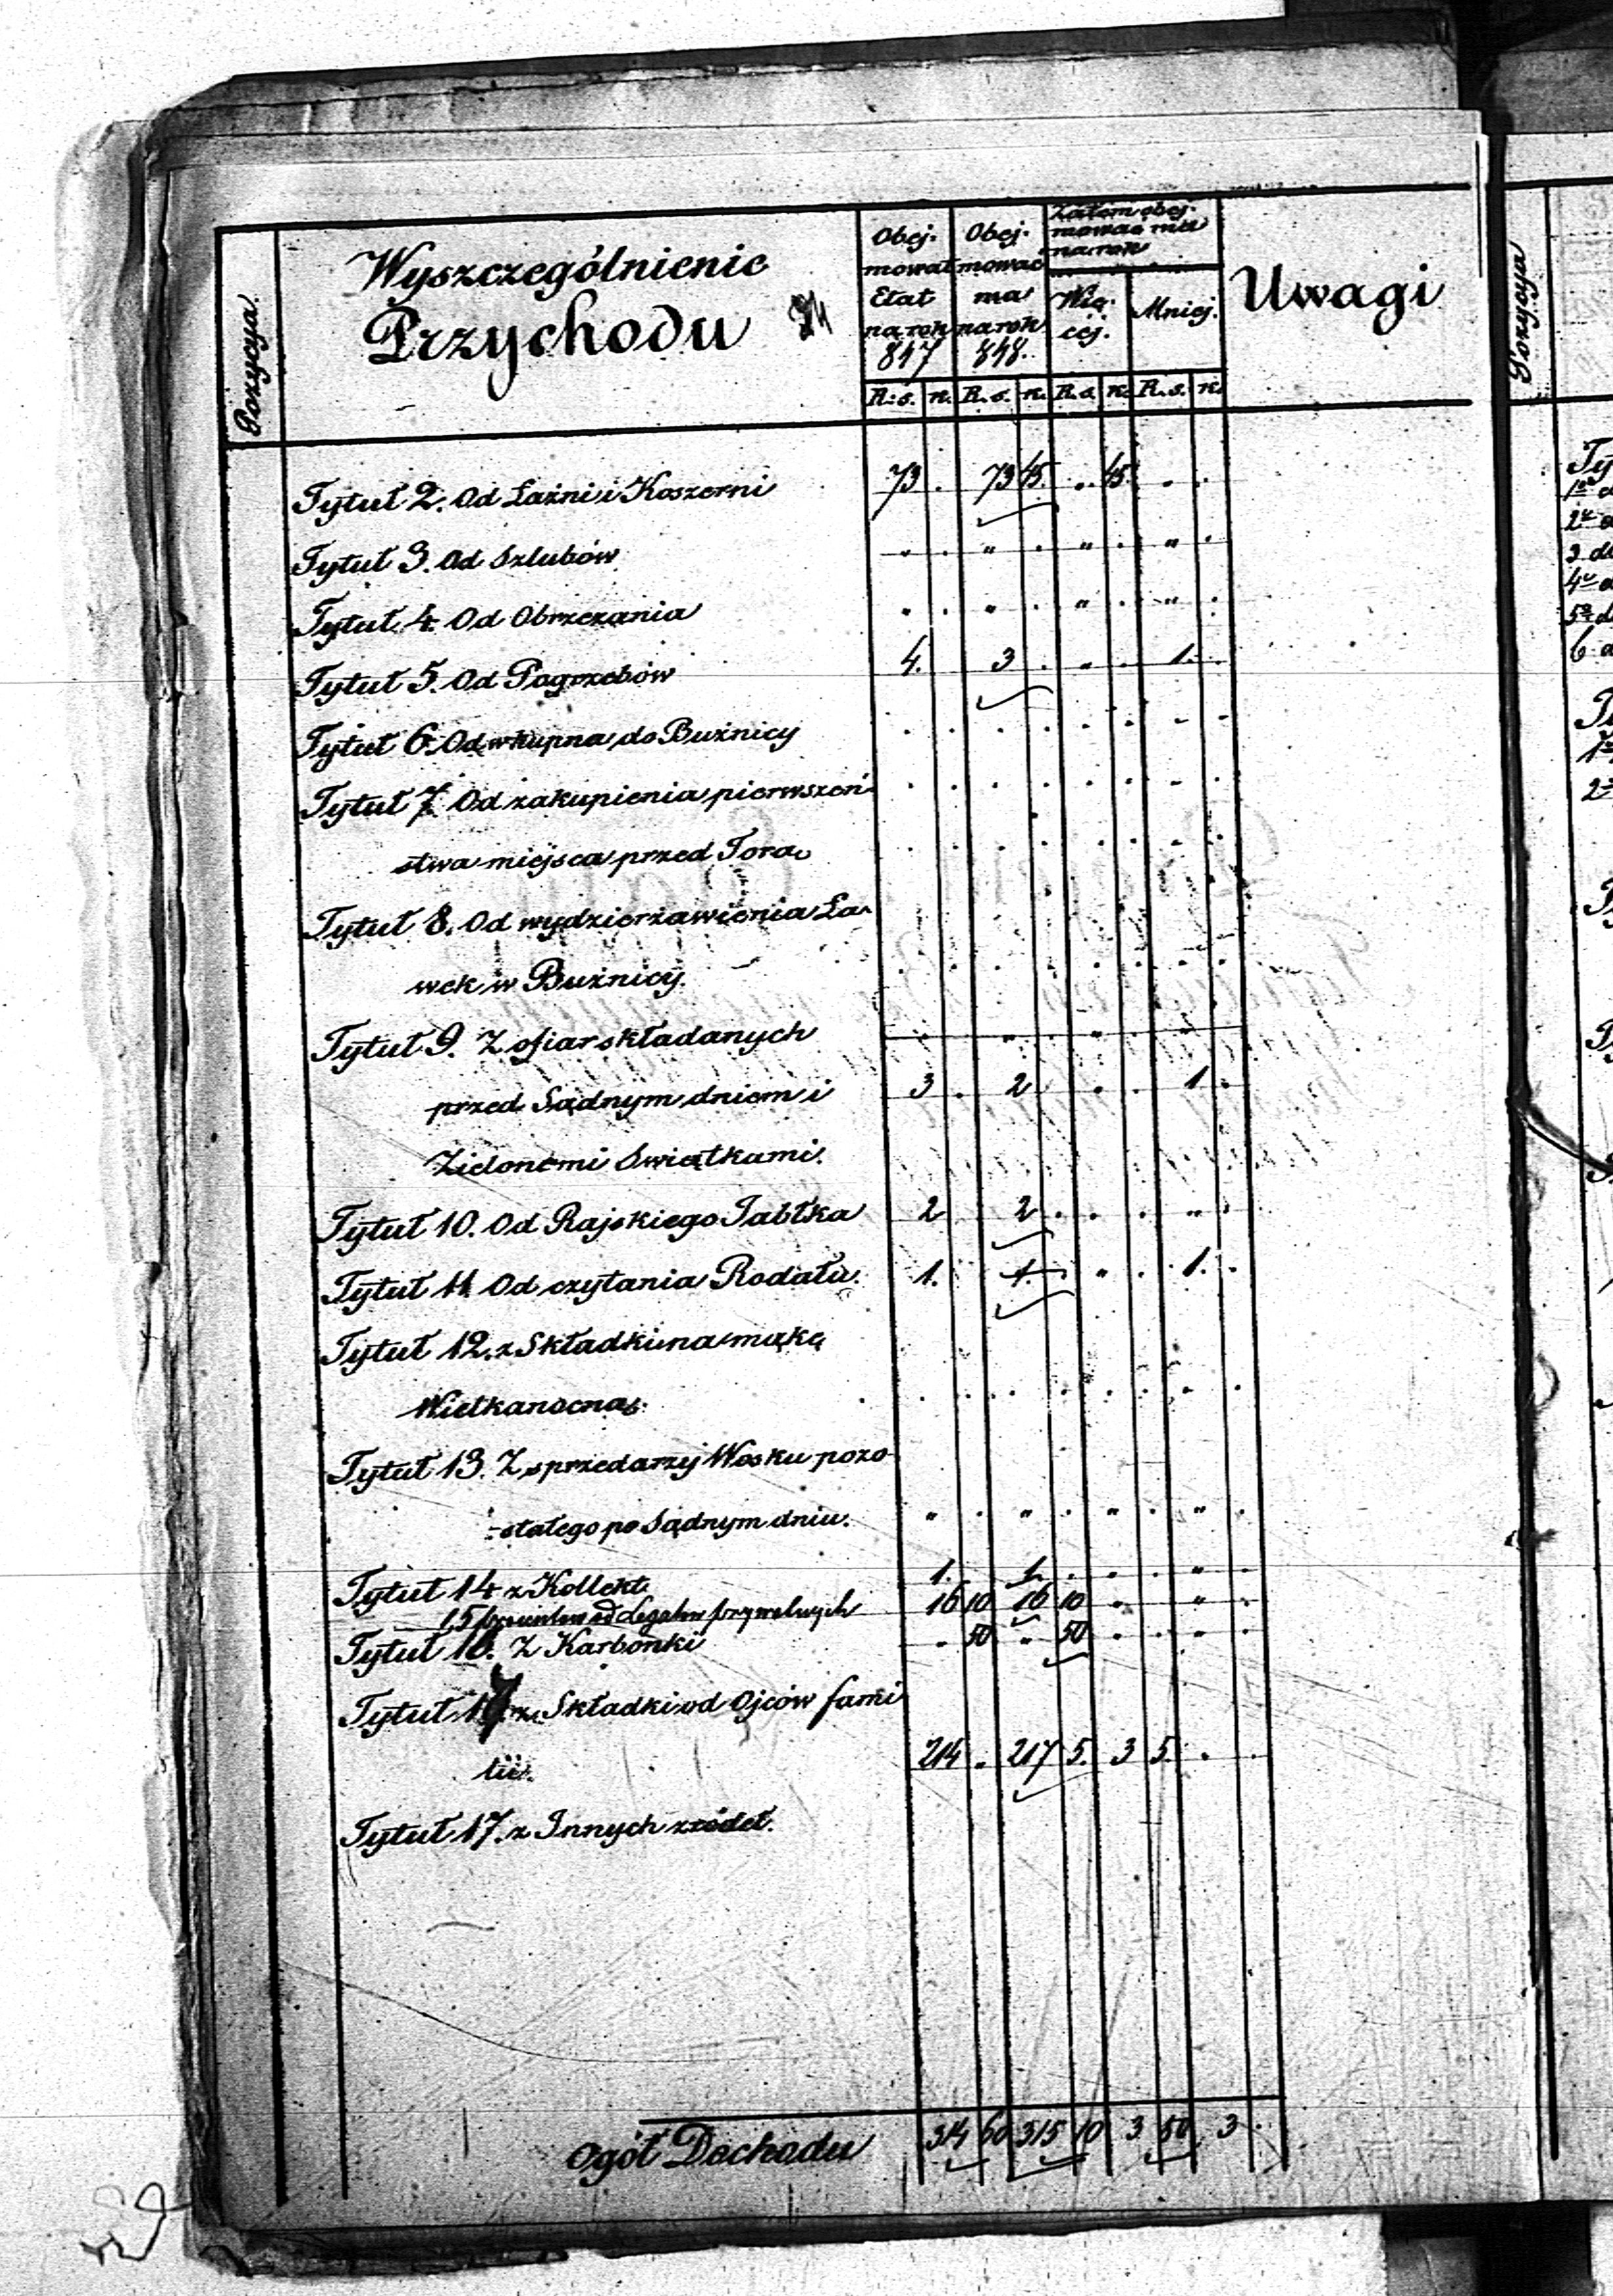 Pozycya.
Wyszczególnienie
Przychodu
Obej-
mował
Etat
na rok
847
Obej-
mować
ma
na rok
848.
Zatem obej-
mować ma
na rok
Wię-
cej.
Mniej.
Uwagi
R: s. k. R. s. k. R. s. k. R. s. k.
Tytuł 2. Od Łaźni i Koszerni 73 . 73 45 . 45 . .
Tytuł 3. Od Szlubów " . " . " . " .
Tytuł 4. Od Obrzezania " . " . " . " .
Tytuł 5. Od Pogrzebów 4. 3 . " . 1. .
Tytuł 6. Od wkupna do Bużnicy . . . . . . - -
Tytuł 7. Od zakupienia pierwszeń-
stwa miejsca przed Torą
Tytuł 8. Od wydzierżawienia Ła-
wek w Bużnicy.
Tytuł 9. Z ofiar składanych
przed Sądnym dniem i 3 . 2 . . 1 .
Zielonemi Swiątkami.
Tytuł 10. Od Rajskiego Jabłka 2 2 . . . " .
Tytuł 11. Od czytania Rodału. 1. 1. " . 1. .
Tytuł 12. z Składki na mąkę
Wielkanocną.
Tytuł 13. Z sprzedarzy Wosku pozo-
-stałego po Sądnym dniu. " . " . " . " .
Tytuł 14 z Kollekt 1. 1. . . . " .
15 od Legatów 16 10 16 10 " " .
Tytuł 16. Z Karbonki " 50 " 50 " . " .
Tytuł 17 z Składki od Ojców fami
lii. 214 . 217 5. 3 5. . .
Tytuł 17. z Innych źródeł.
Ogół Dochodu 314 60 315 10 3 50 3 .
Pozycya